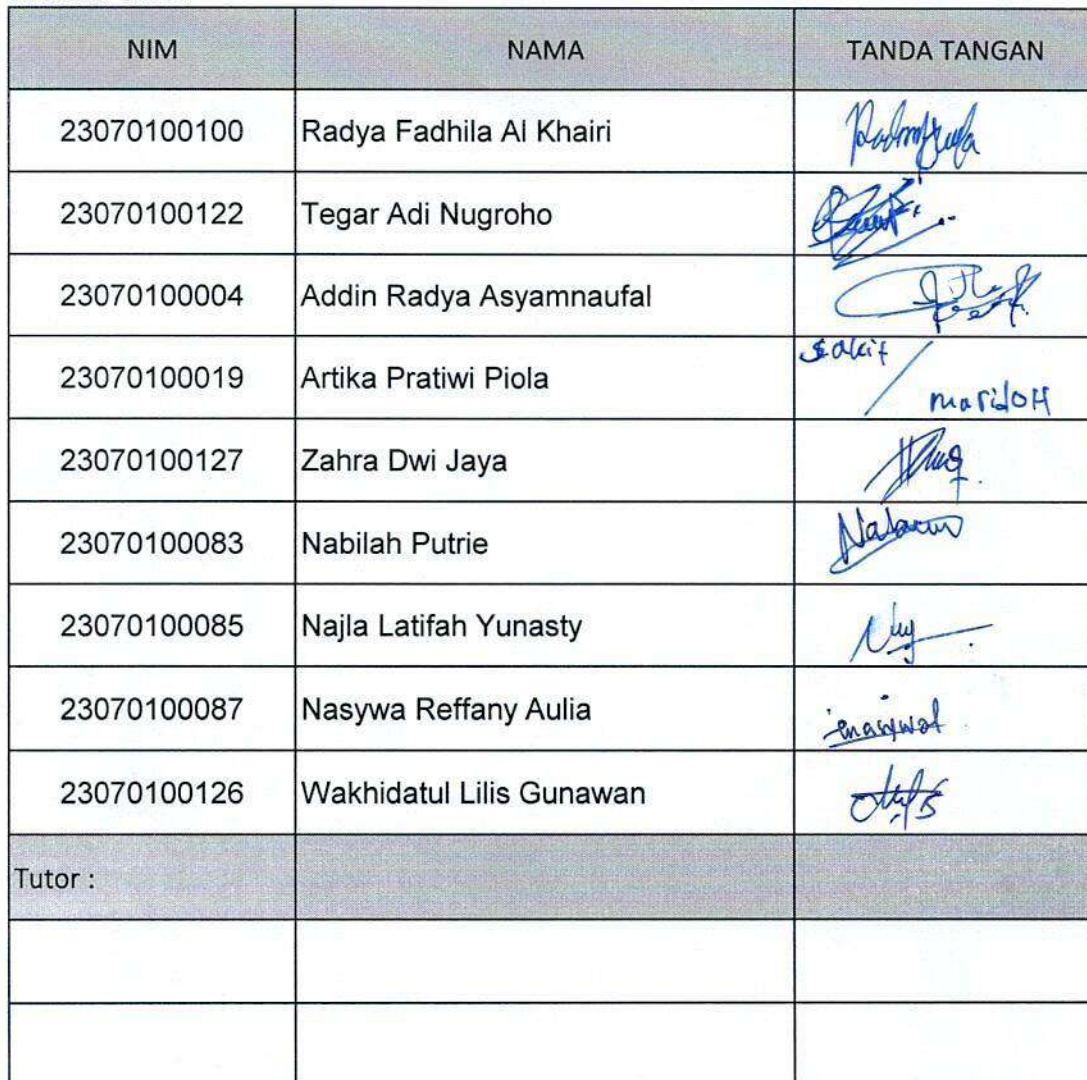 NIM NAMA TANDA TANGAN
23070100100 Radya Fadhila Al Khairi
23070100122 Tegar Adi Nugroho
23070100004 Addin Radya Asyamnaufal
23070100019 Artika Pratiwi Piola sakit / maridOH
23070100127 Zahra Dwi Jaya
23070100083 Nabilah Putrie
23070100085 Najla Latifah Yunasty
23070100087 Nasywa Reffany Aulia
23070100126 Wakhidatul Lilis Gunawan
Tutor :